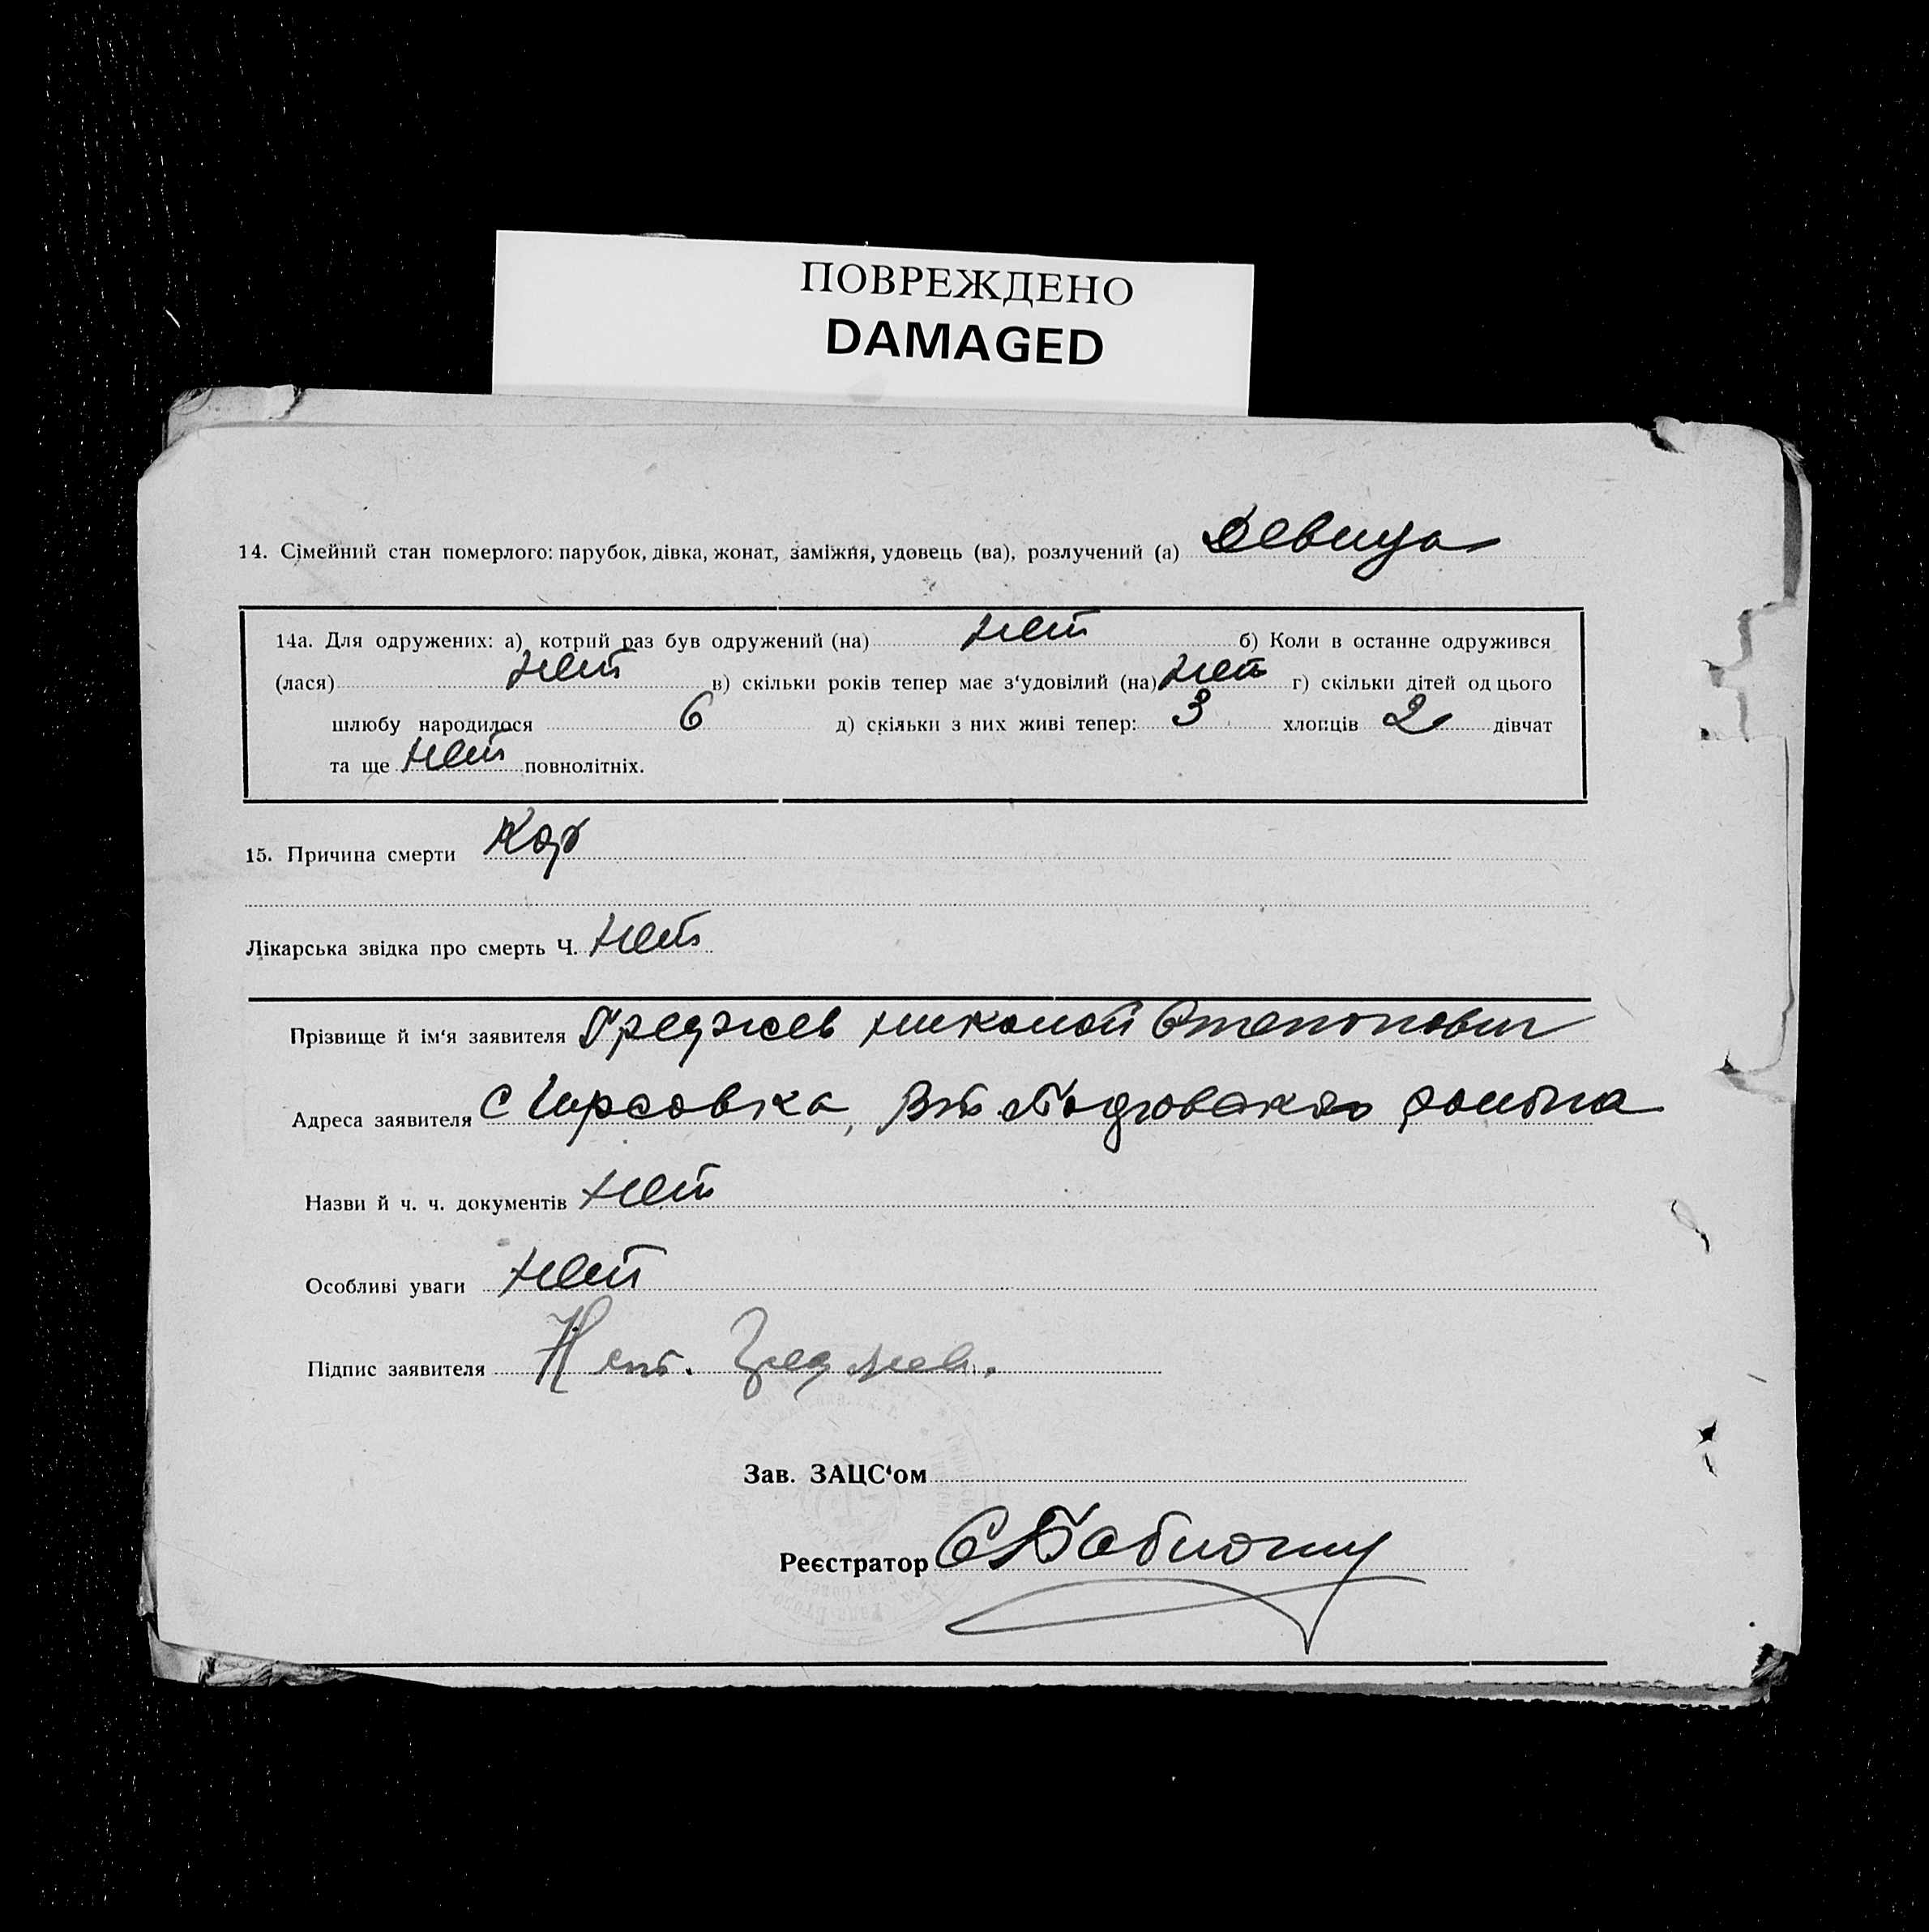 ПОВРЕЖДЕНО
DAMAGED
14. Сімейний стан померлого: парубок, дівка, жонат, заміжня, удовець (ва), розлучений (а) девица
14а. Для одружених: а) котрий раз був одружений (на) нет б) Коли в останне одружився
(лася) нет в) скільки років тепер має з‘удовілий (на) нет г) скільки дітей од цього
шлюбу народилося 6 д) скільки з них живі тепер: 3 хлопців 2 дівчат
та ще нет повнолітніх.
15. Причина смерти Кор
Лікарська звідка про смерть Ч. нет
Прізвище й ім‘я заявителя Греджев николай Степанович
Адреса заявителя с Чирсовка, района
Назви й ч. ч. документів нет
Особливі уваги нет
Підпис заявителя
Зав. ЗАЦС‘ом
Реєстратор